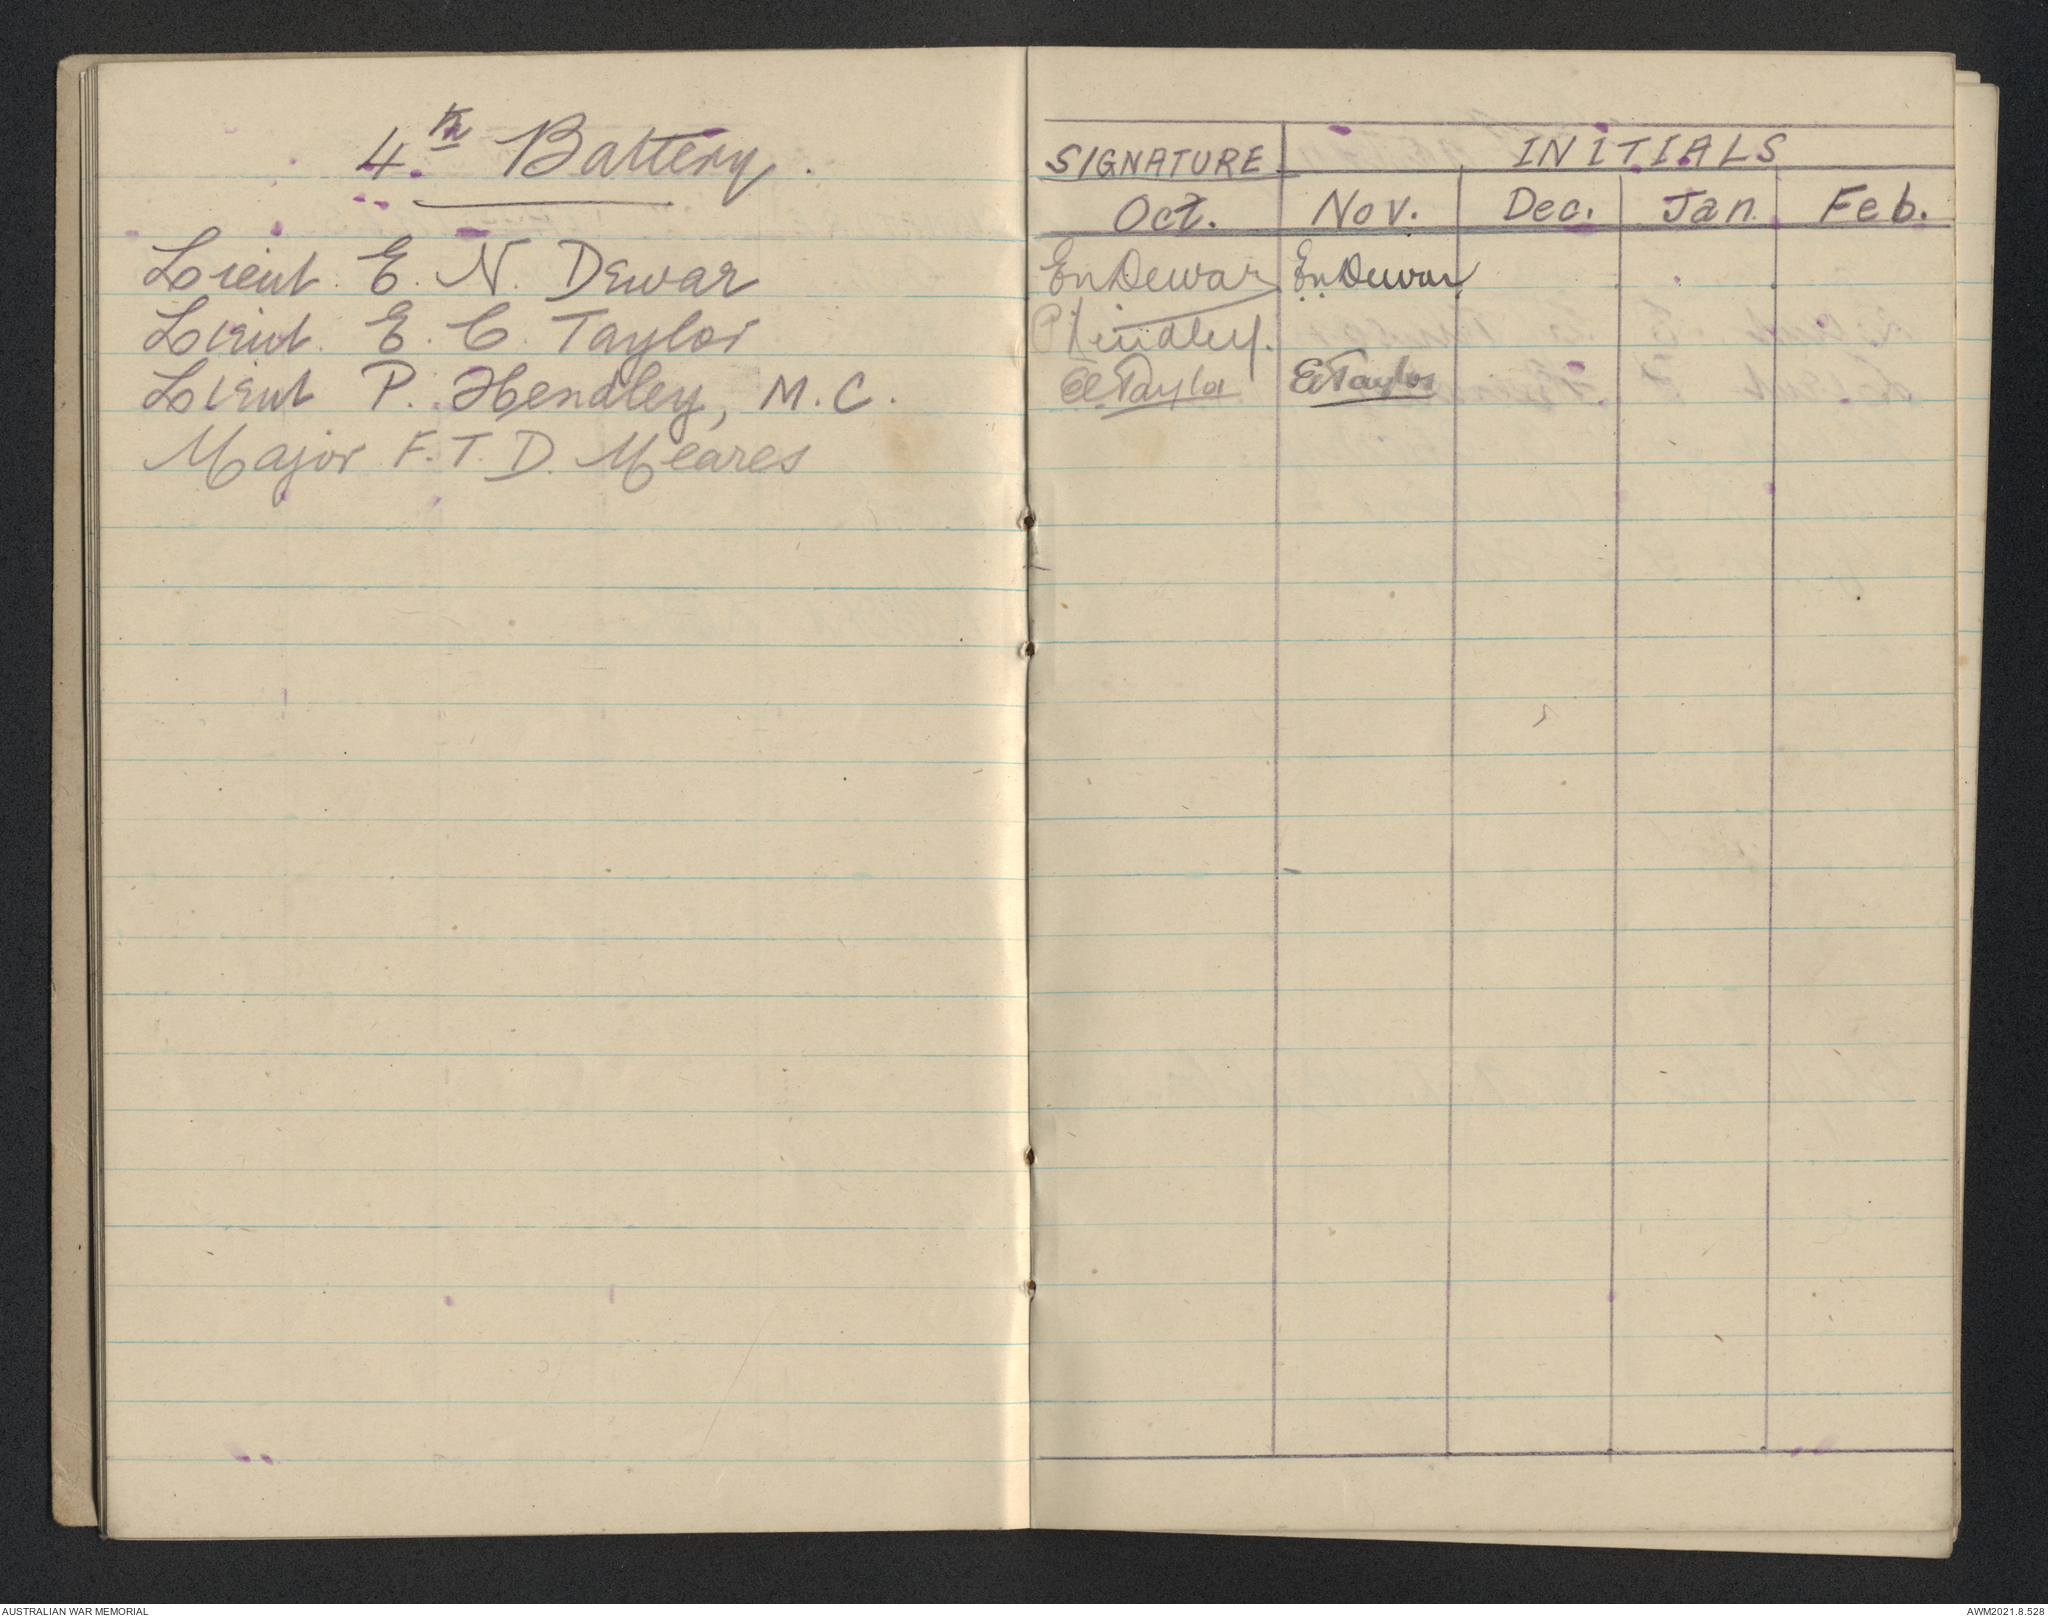 4th Battery.
Lieut. E. N. Dewar
Lieut. E. C. Taylor
Lieut P. Hendley, M.C.
Major F.T.D. Meares
SIGNATURE INITIALS
Oct. Nov. Dec. Jan. Feb.
EnDewar EnDewar
PHendley.
ECTaylor ECTaylor
AUSTRALIAN WAR MEMORIAL AWM2021.8.528